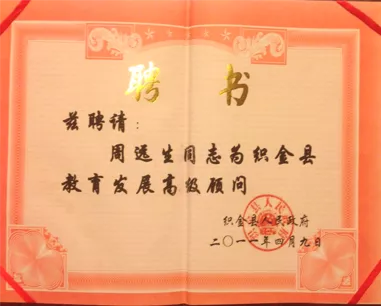 聘书
兹聘请：
周远生同志为织金县
教育发展高级顾问
织金县人民政府
二〇一一年四月九日